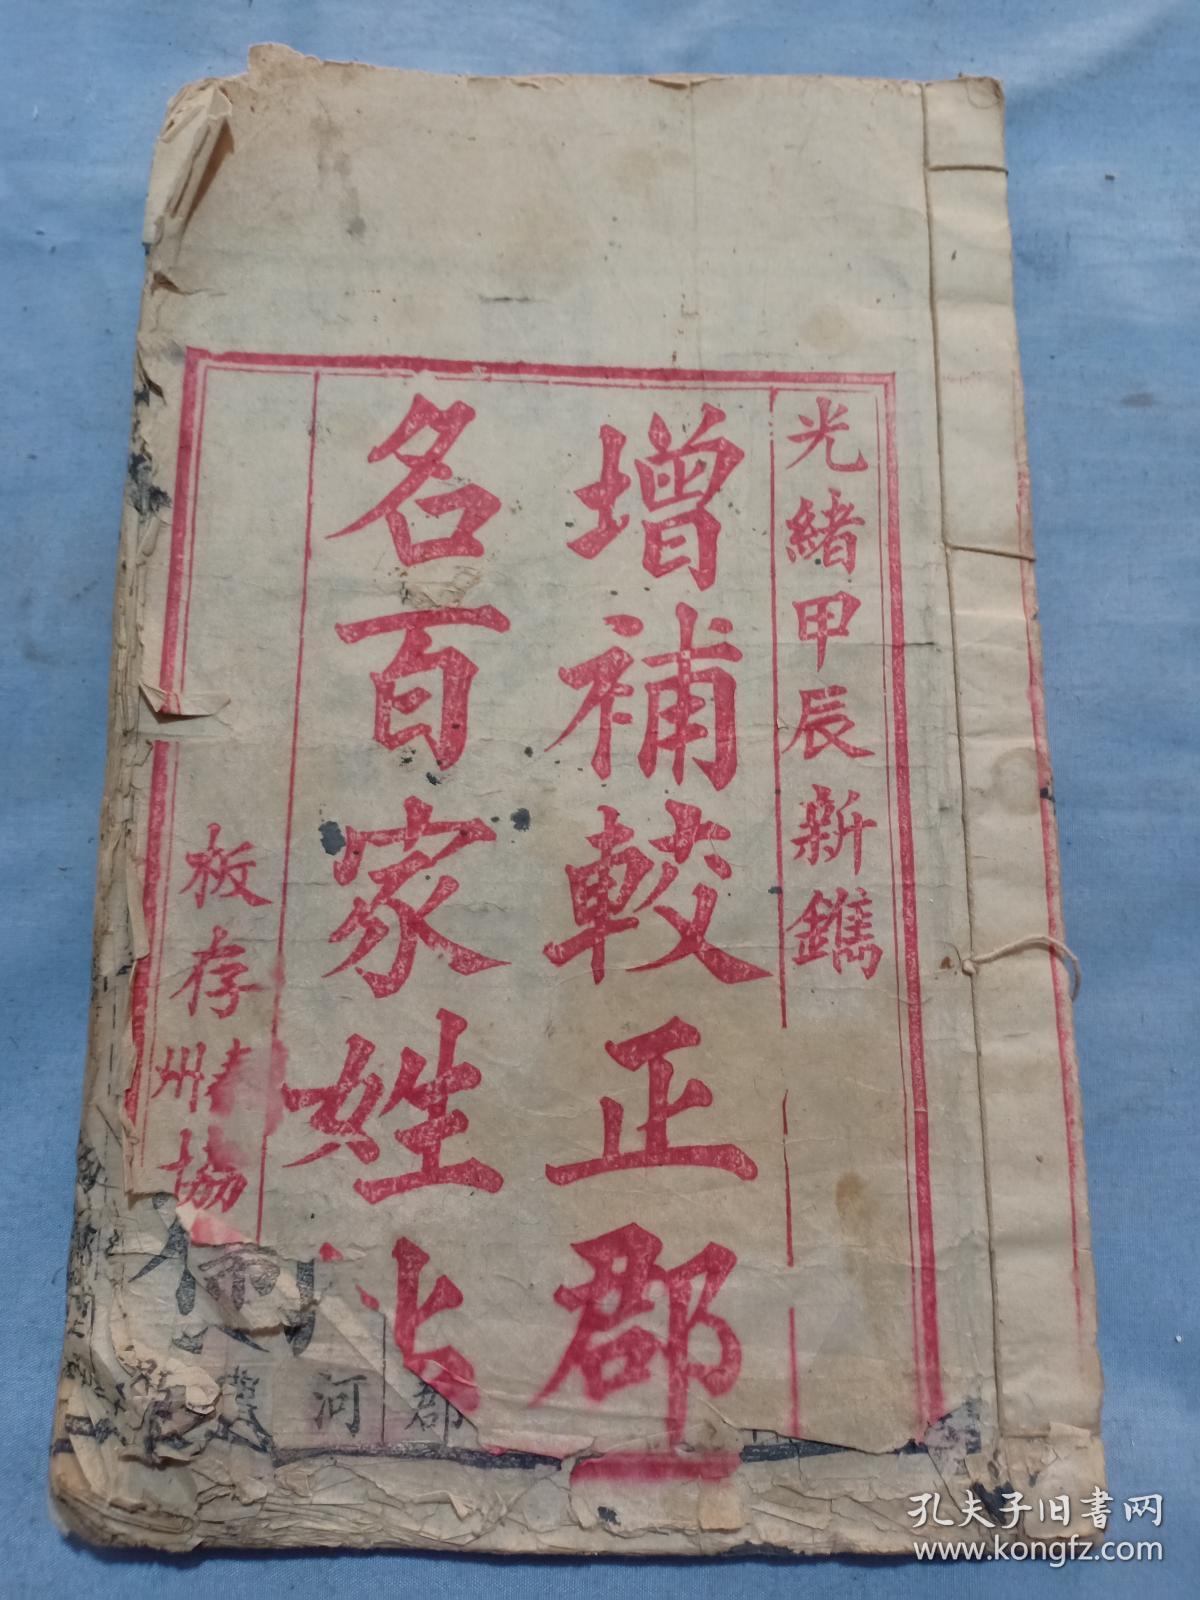 光緒甲辰新鐫
增補較正郡
名百家姓
板存
州協
郡
河
孔夫子旧书网
www.kongfz.com